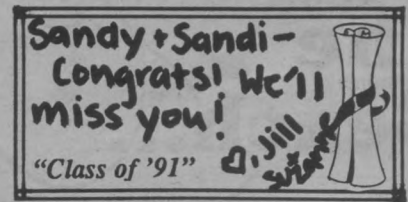 Sandy + Sandi-
Congrats! We'll
miss you!
♡, Jill
Suzanne
"Class of '91"